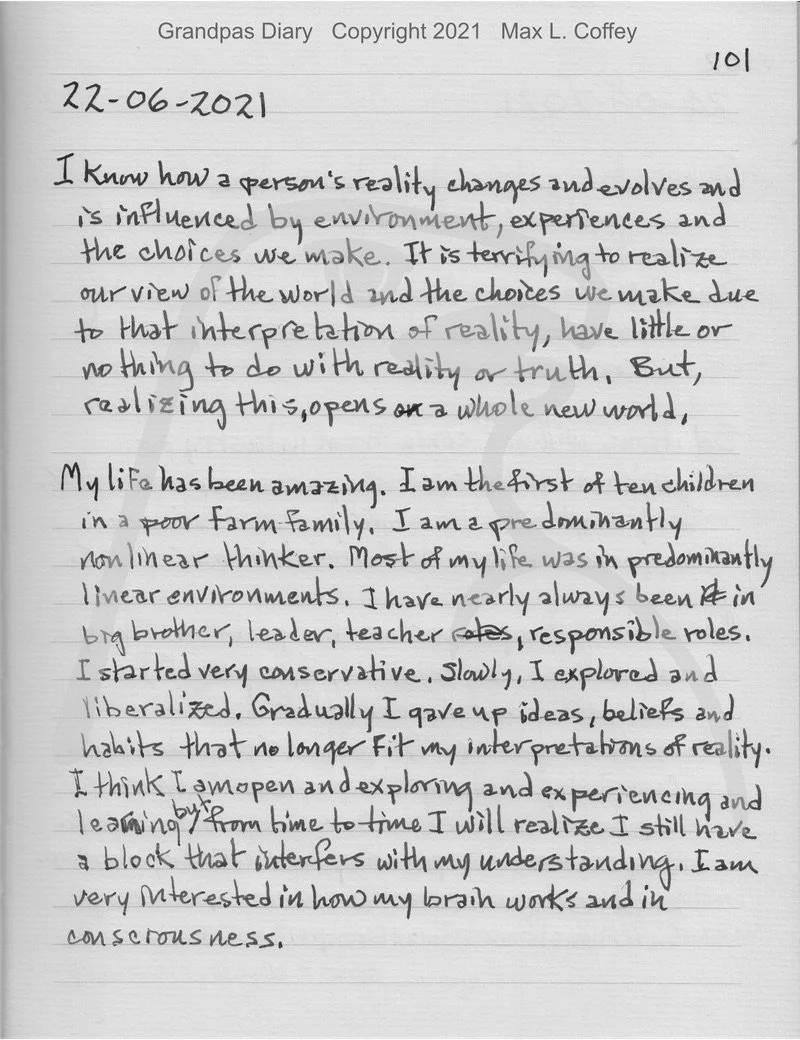 Grandpas Diary Copyright 2021 Max L. Coffey
101
22-06-2021
I know how a person's reality changes and evolves and
is influenced by environment, experiences and
the choices we make. It is terrifying to realize
our view of the world and the choices we make due
to that interpretation of reality, have little or
nothing to do with reality or truth. But,
realizing this, opens a whole new world.
My life has been amazing. I am the first of ten children
in a poor farm family. I am a predominantly
nonlinear thinker. Most of my life was in predominantly
linear environments. I have nearly always been in
big brother, leader, teacher roles, responsible roles.
I started very conservative. Slowly, I explored and
liberalized. Gradually I gave up ideas, beliefs and
habits that no longer fit my interpretations of reality.
I think I am open and exploring and experiencing and
learning but from time to time I will realize I still have
a block that interfers with my understanding. I am
very interested in how my brain works and in
consciousness.